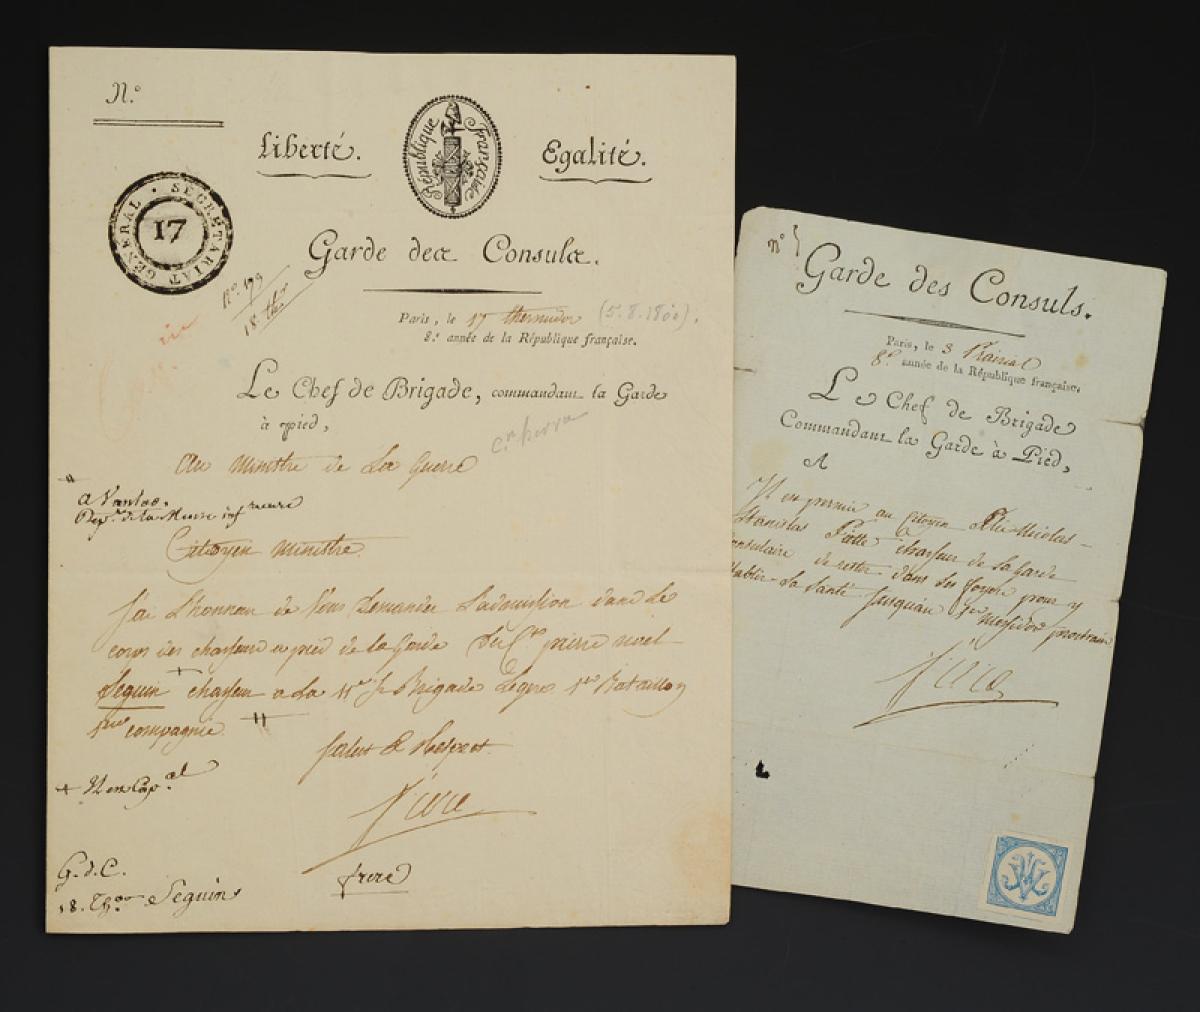 N.º
Liberté.
République française
Egalité.
SECRÉTARIAT GÉNÉRAL
17
Garde des Consuls.
Nº. 179
18. thor
Paris, le 17 thermidor (5.8.1800).
8.e année de la République française.
Le Chef de Brigade, commandant la Garde
à pied,
Au Ministre de La Guerre
a Vantoo.
Dep.t de la Meuse inf.reure
Citoyen Ministre
J'ai L'honneur de Vous Demander L'admission dans Le
corps des chasseurs a pied de la Garde du C.en pierre noel
Seguin chasseur a La 11.e 1/2 Brigade Legere 1.er Bataillon
compagnie.
Salut & Respect
frere
frere
G.d.C.
18. Th.or Seguin
nº 5
Garde des Consuls.
Paris, le 3 Prairial
8.e année de la République française.
Le Chef de Brigade
Commandant la Garde à Pied,
A
Il est permis au Citoyen Nicolas
Stanislas chasseur de la Garde
Consulaire de rester dans ses foyers pour y
Rétablir Sa Santé jusqu'au 1.er Messidor prochain
frere